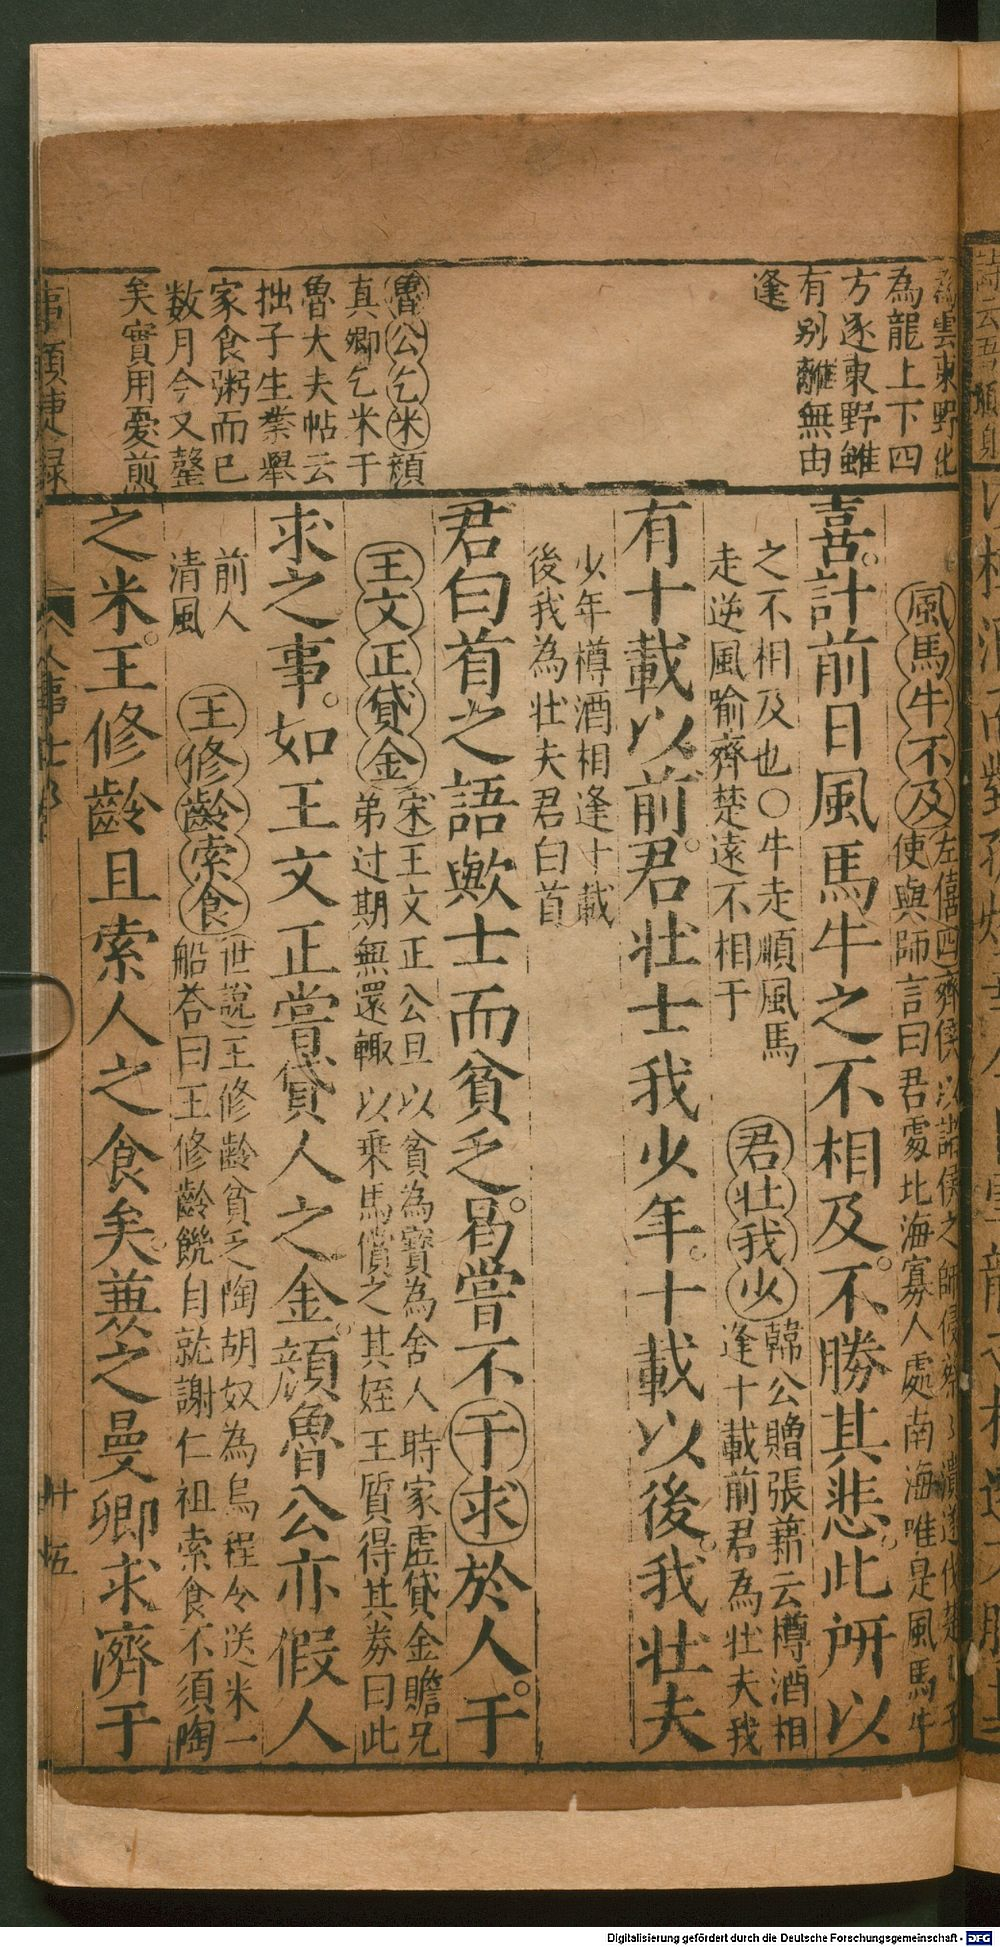 為雲東野化
為龍上下四
方逐東野雖
有别離無由
逢
魯公乞米顔
真卿乞米于
魯大夫帖云
拙子生業舉
家食粥而已
数月今又罄
矣實用憂煎
風馬牛不及
左僖四齊侯以諸侯之師侵蔡〻潰遂伐楚
使與師言曰君處北海寡人處南海唯是風馬牛
喜。計前日風馬牛之不相及。不勝其悲。此所以
之不相及也〇牛走順風馬
走逆風喻齊楚遠不相干
君壮我少
韓公贈張籍云樽酒相
逢十載前君為壮夫我
有十載以前。君壮士我少年。十載以後。我壮夫
少年樽酒相逢十載
後我為壮夫君白首
君白首之語歟士而貧乏。曷甞不干求於人。于
王文正貸金
宋王文正公旦以貧為寳為舍人時家虚貸金贍兄
弟过期無還輙以乗馬償之其姪王質得其劵曰此
求之事。如王文正嘗貸人之金。顔魯公亦假人
前人
清風
王修齡索食
世說王修齡貧乏陶胡奴為烏程令送米一
船荅曰王修齡饑自就謝仁祖索食不須陶
之米。王修齡且索人之食矣。兼之曼卿求濟于
事類捷録
人事
廿五
Digitalisierung gefördert durch die Deutsche Forschungsgemeinschaft - DFG